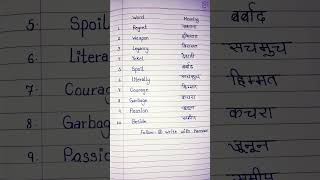 Word Meaning
1 Regret पछतावा
2 Weapon हथियार
3 Legacy विरासत
4
5 Spoil बर्बाद
6 Literally सचमुच
7 Courage हिम्मत
8 Garbage कचरा
9 Passion जुनून
10 Beside समीप
Follow @ write with
5. Spoil बर्बाद
6. Literal सचमुच
7. Courag हिम्मत
8. Garbag कचरा
9. Passio जुनून